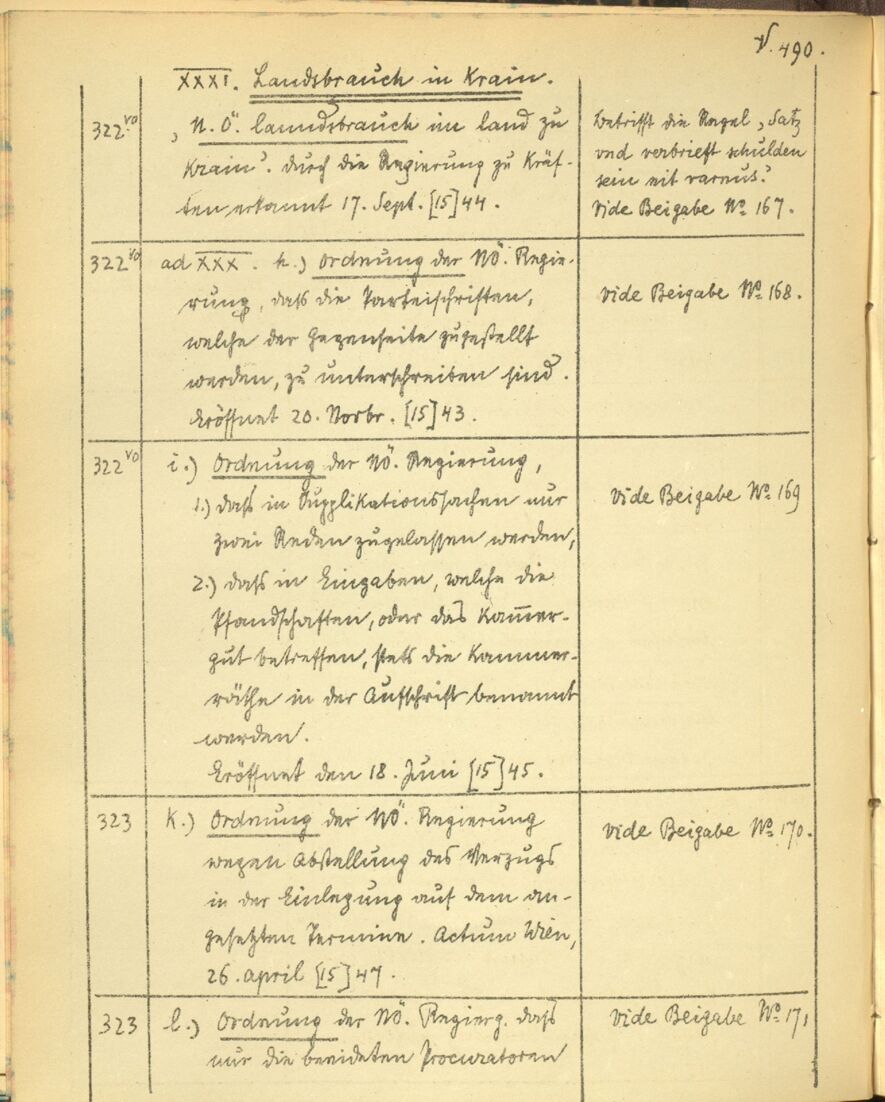 V. 490.
XXXI. Landsbrauch in Krain.
322 vo
„N. Ö. lanndsbrauch im land zu
Krain“. durch die Regierung zu Kräf-
ten erkannt 17. Sept. [15]44.
betrifft die Regel „Satz
vnd verbrieft schulden
sein nit varnus.“
Vide Beigabe No 167.
322 vo
ad XXX. h.) Ordnung der NÖ. Regie-
rung, daß die Parteischriften,
welche der Gegenseite zugestellt
werden, zu unterschreiben sind.
Eröffnet 20. Novbr. [15]43.
vide Beigabe No 168.
322 vo
i.) Ordnung der NÖ. Regierung,
1.) daß in Supplikationssachen nur
zwei Reden zugelassen werden,
2.) daß in Eingaben, welche die
Pfandschaften, oder das Kam̄er-
gut betreffen, stets die Kammer-
räthe in der Aufschrift benannt
werden.
Eröffnet den 18. Juni [15]45.
vide Beigabe No 169
323
k.) Ordnung der NÖ. Regierung
wegen Abstellung des Verzugs
in der Einlegung auf dem an-
gesetzten Termine. Actum Wien,
26. april [15]47.
vide Beigabe No 170.
323
l.) Ordnung der NÖ. Regierg. daß
nur die beeideten Procuratoren
vide Beigabe No 171